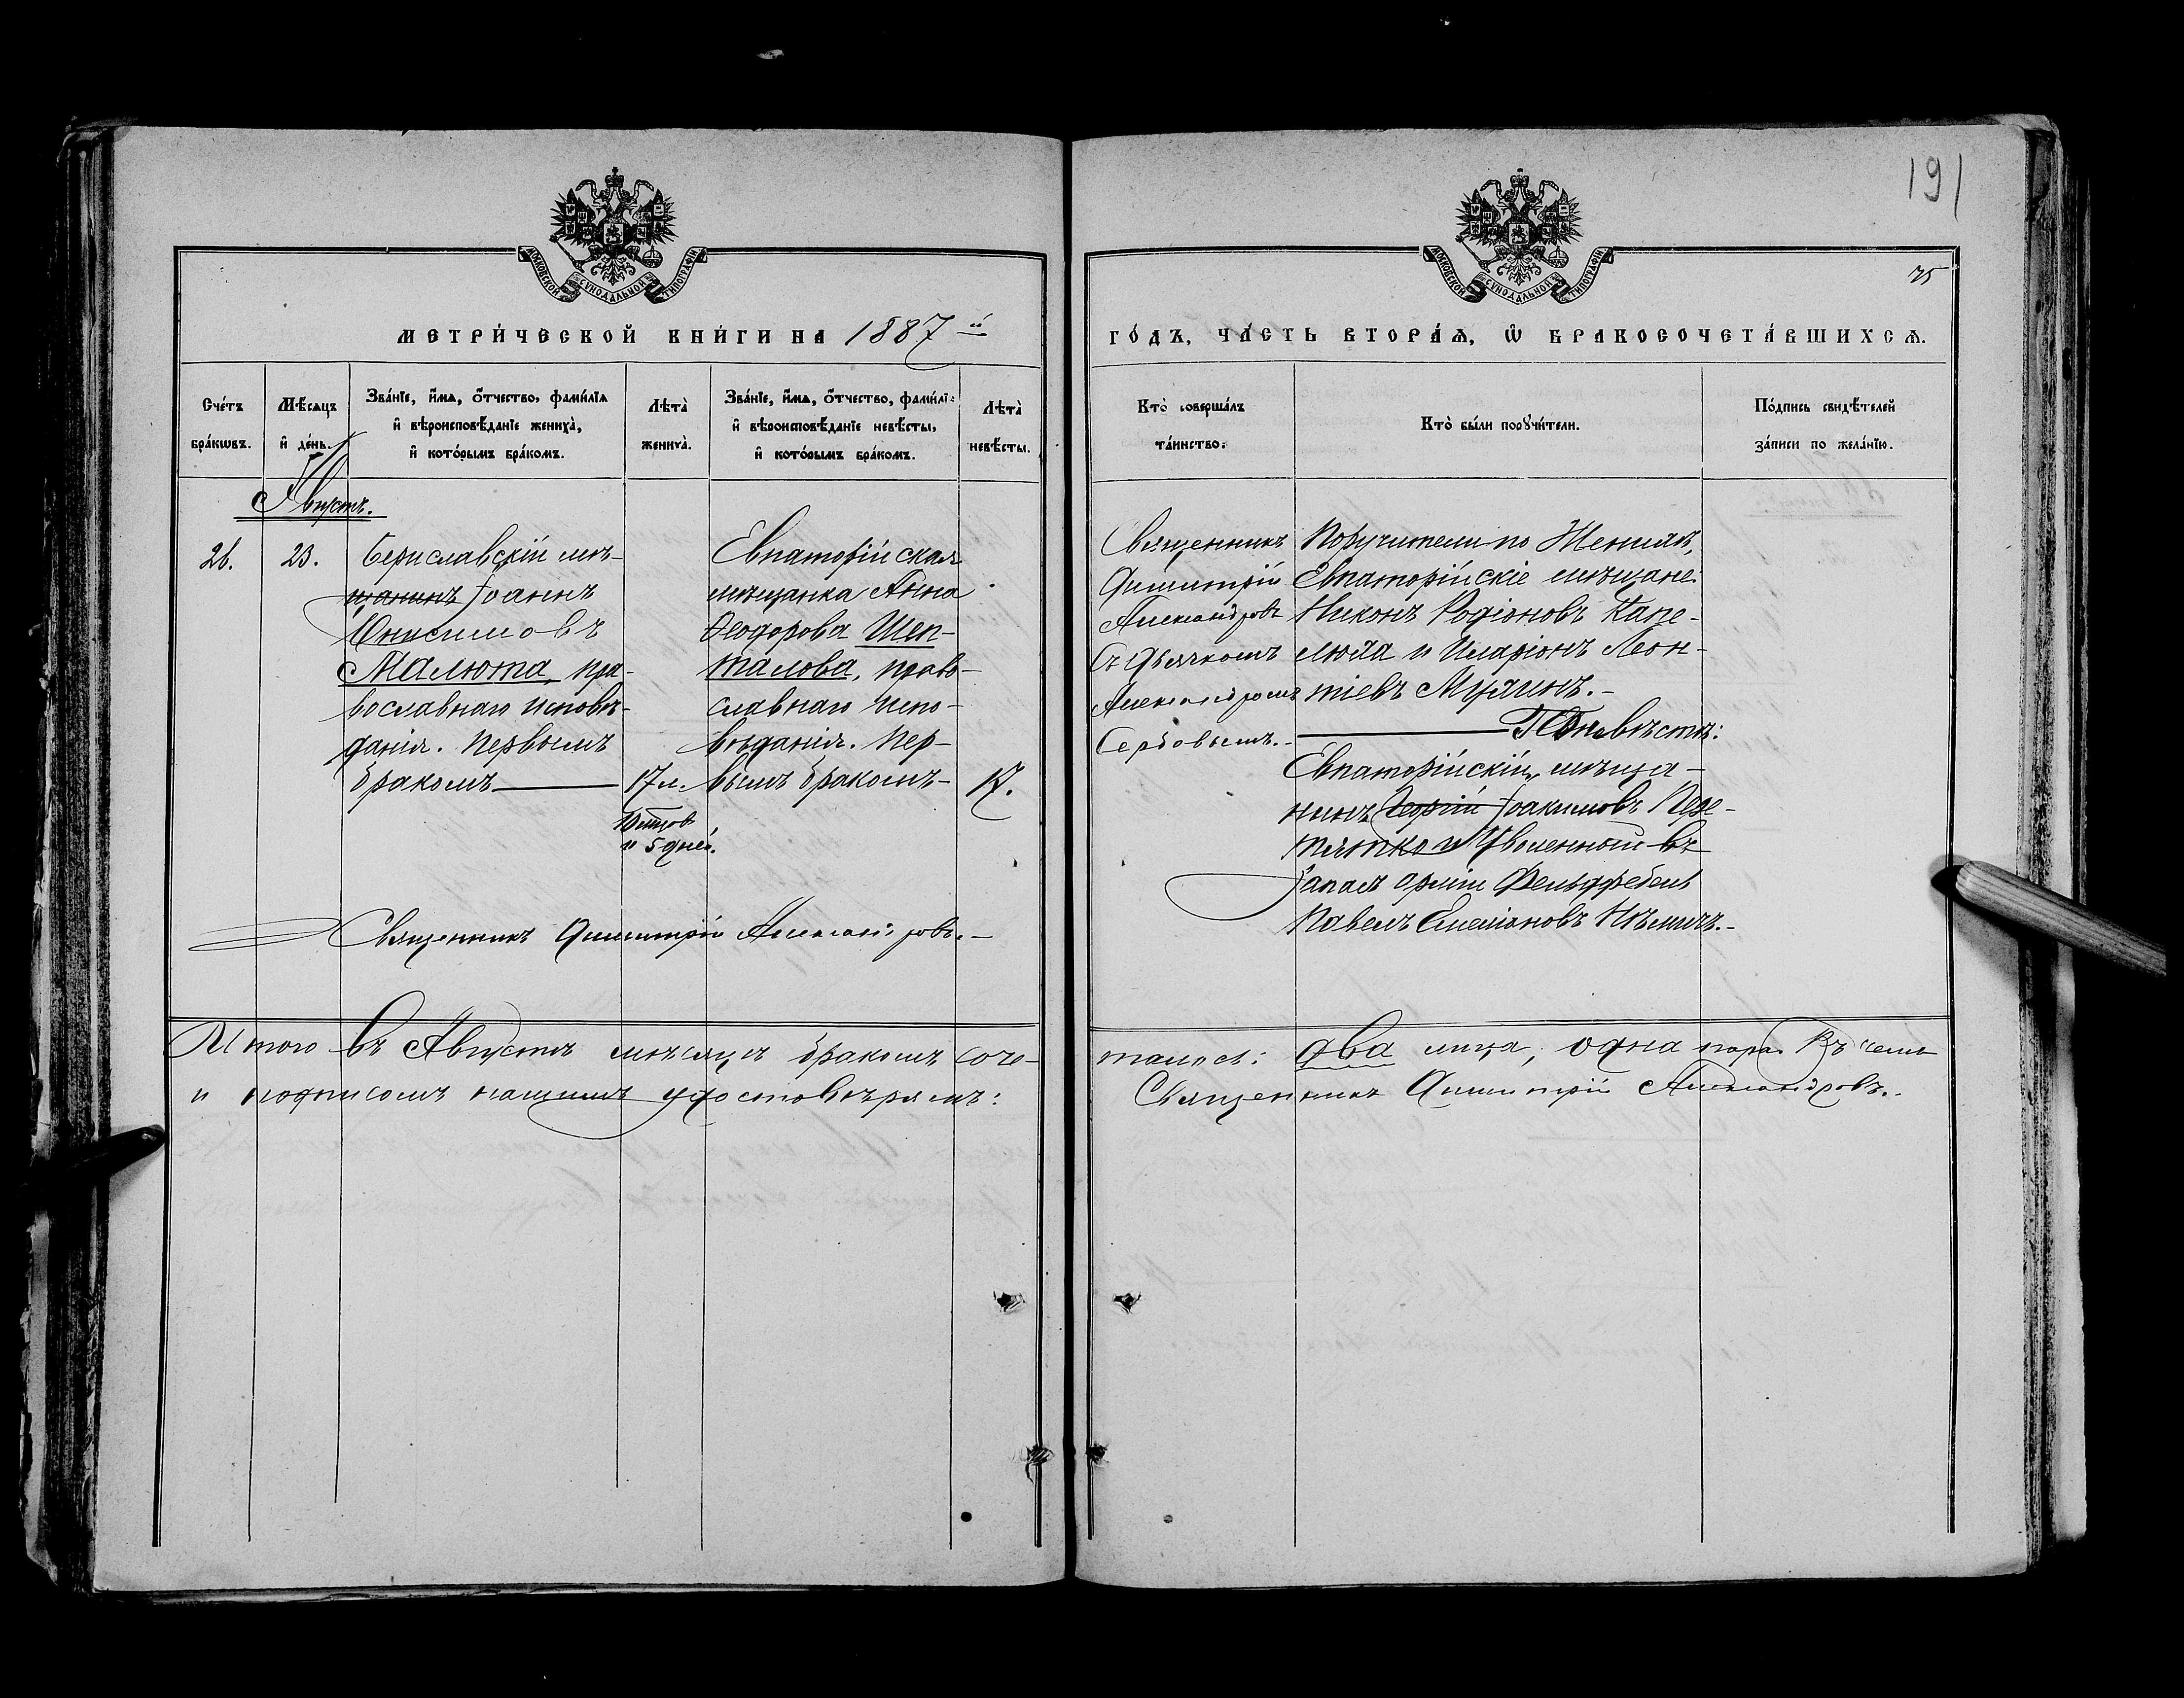 191
75
МОСКОВСКОЙ СѴНОДАЛЬНОЙ ТИПОГРАФІИ
МОСКОВСКОЙ СѴНОДАЛЬНОЙ ТИПОГРАФІИ
МЕТРИ́ЧЕСКОЙ КНИ́ГИ НА 1887й
ГО́ДЪ, ЧА́СТЬ ВТОРА́Ѧ, Ѽ БРАКОСОЧЕТА́ВШИХСѦ.
Сче́тъ бра́кѡвъ.
Мѣ́сѧцъ и҆ де́нь.
Зва́нїе, и҆́мѧ, ѻ҆́тчество, фами́лїѧ и҆ вѣроисповѣ́данїе жениха̀, и҆ кото́рымъ бра́комъ.
Лѣта̀ жениха̀.
Зва́нїе, и҆́мѧ, ѻ҆́тчество, фами́лїѧ и҆ вѣроисповѣ́данїе невѣ́сты, и҆ кото́рымъ бра́комъ.
Лѣта̀ невѣ́сты.
Кто̀ соверша́лъ та́инство.
Кто̀ бы́ли порꙋчи́тели.
По́дпись свидѣ́телей за́писи по жела́нїю.
Августъ.
26.
23.
Бериславскій мѣ-
щанинъ Іоаннъ
Онисимовъ
Малюта, пра-
вославнаго исповѣ-
данія. Первымъ
бракомъ
17 л.
и 5 дней.
Евпаторійская
мѣщанка Анна
Ѳеодорова Шеп-
талова, право-
славнаго испо-
вѣданія. Пер-
вымъ бракомъ
17.
Священникъ
Димитрій
Александровъ
съ дьячкомъ
Александромъ
Сербовымъ.
Поручители по женихѣ,
Евпаторійскіе мѣщане:
Никонъ Родіоновъ Капе-
люха и Иларіонъ Леон-
тіевъ Мулинъ.
По невѣстѣ:
Евпаторійскій мѣща-
нинъ Георгій Іоакимовъ Пере-
тятко и Уволенный въ
запасъ арміи Фельдфебель
Павелъ Емеліановъ Нѣмичъ.
Священникъ Димитрій Александровъ.
Итого въ Августѣ мѣсяцѣ бракомъ соче-
талось: два лица, одна пара. Въ чемъ
и подписомъ нашимъ удостовѣряемъ:
Священникъ Димитрій Александровъ.